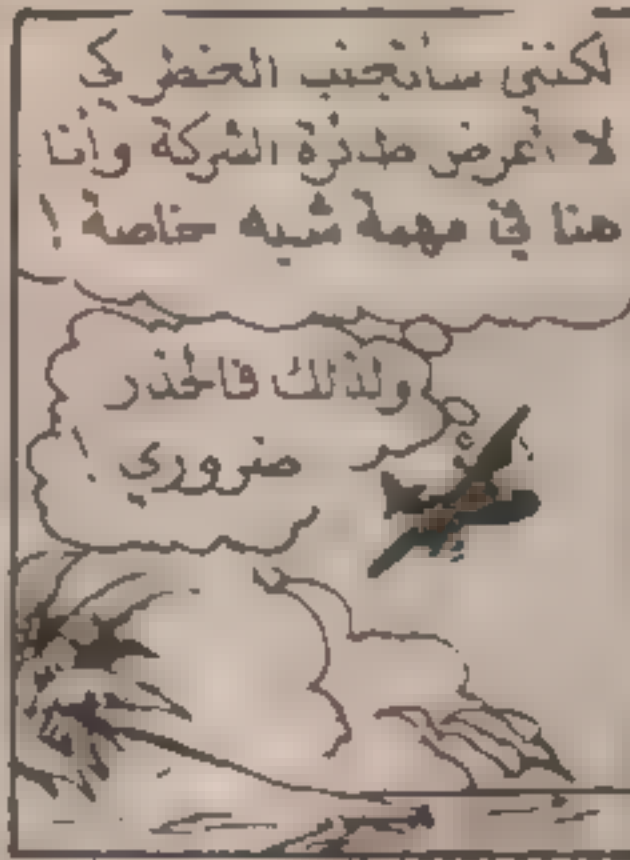 لكنني سأتجنب الخطر كي
لا أعرض طائرة الشركة وأنا
هنا في مهمة شبه خاصة !
ولذلك فالحذر
ضروري !